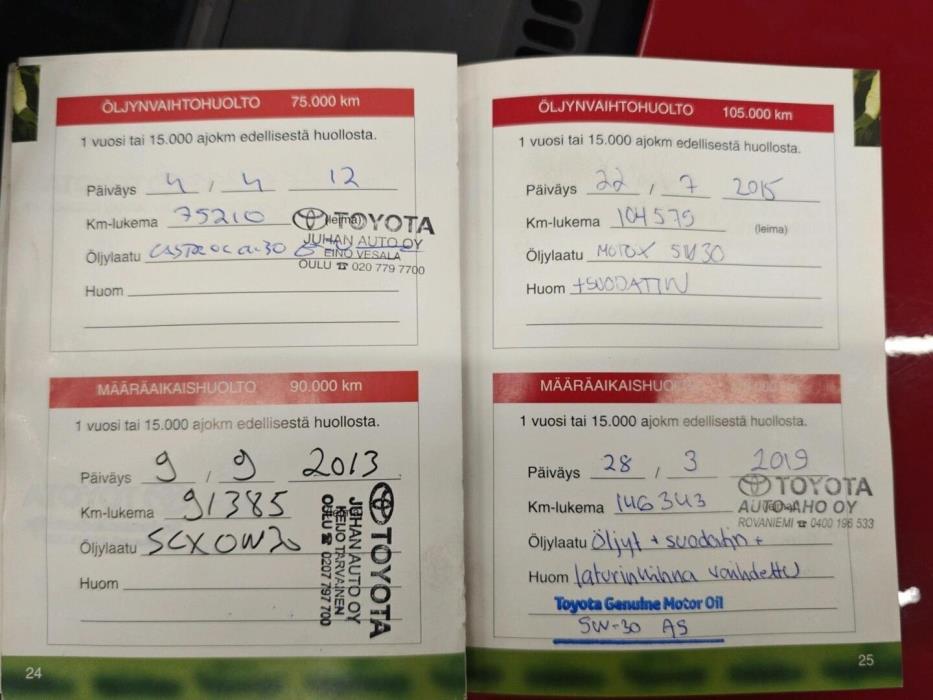 ÖLJYNVAIHTOHUOLTO 75.000 km
1 vuosi tai 15.000 ajokm edellisestä huollosta.
Päiväys 4 / 4 12
Km-lukema 75210 (leima)
Öljylaatu CASTROL 0W-30
Huom
TOYOTA
JUHAN AUTO OY
EINO VESALA
OULU ☎ 020 779 7700
MÄÄRÄAIKAISHUOLTO 90.000 km
1 vuosi tai 15.000 ajokm edellisestä huollosta.
Päiväys 9 / 9 2013
Km-lukema 91385
Öljylaatu SLX 0W30
Huom
TOYOTA
JUHAN AUTO OY
KEIJO TARVAINEN
OULU ☎ 0207 797 700
24
ÖLJYNVAIHTOHUOLTO 105.000 km
1 vuosi tai 15.000 ajokm edellisestä huollosta.
Päiväys 22 / 7 2015
Km-lukema 104579 (leima)
Öljylaatu MOTOX 5W30
Huom +SUODATIN
MÄÄRÄAIKAISHUOLTO
1 vuosi tai 15.000 ajokm edellisestä huollosta.
Päiväys 28 / 3 2019
Km-lukema 146343
Öljylaatu Öljyt + suodatin +
Huom laturinhihna vaihdettu
Toyota Genuine Motor Oil
5W-30 AS
TOYOTA
AUTO-AHO OY
ROVANIEMI ☎ 0400 196 533
25